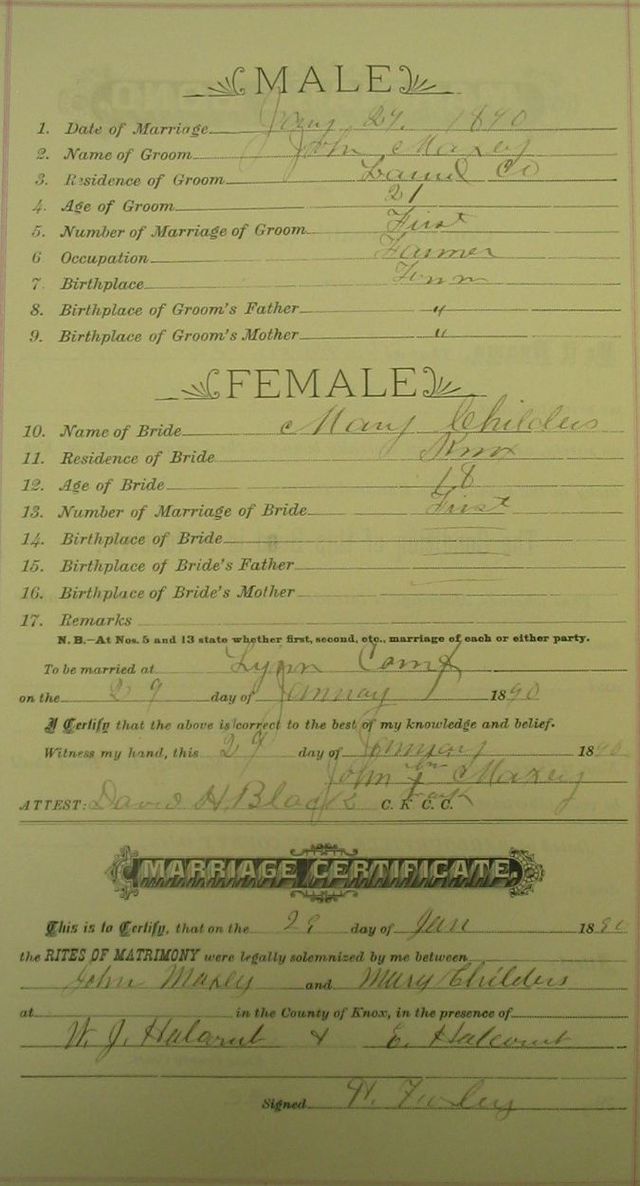 MALE
1. Date of Marriage Jany 29, 1890
2. Name of Groom John Maxey
3. Residence of Groom Laurel Co
4. Age of Groom 21
5. Number of Marriage of Groom First
6 Occupation Farmer
7. Birthplace Tenn
8. Birthplace of Groom's Father "
9. Birthplace of Groom's Mother "
FEMALE
10. Name of Bride Mary Childers
11. Residence of Bride Knox
12. Age of Bride 18
13. Number of Marriage of Bride First
14. Birthplace of Bride
15. Birthplace of Bride's Father
16. Birthplace of Bride's Mother
17. Remarks
N. B.—At Nos. 5 and 13 state whether first, second, etc., marriage of each or either party.
To be married at Lynn Camp
on the 29 day of January 1890
I Certify that the above is correct to the best of my knowledge and belief.
Witness my hand, this 29 day of January 1890
John X Maxey
mark
ATTEST: David H. Black C. K. C. C.
MARRIAGE CERTIFICATE.
This is to Certify, that on the 29 day of Jan 1890
the RITES OF MATRIMONY were legally solemnized by me between
John Maxey and Mary Childers
at in the County of Knox, in the presence of
W. J. &  E.
Signed